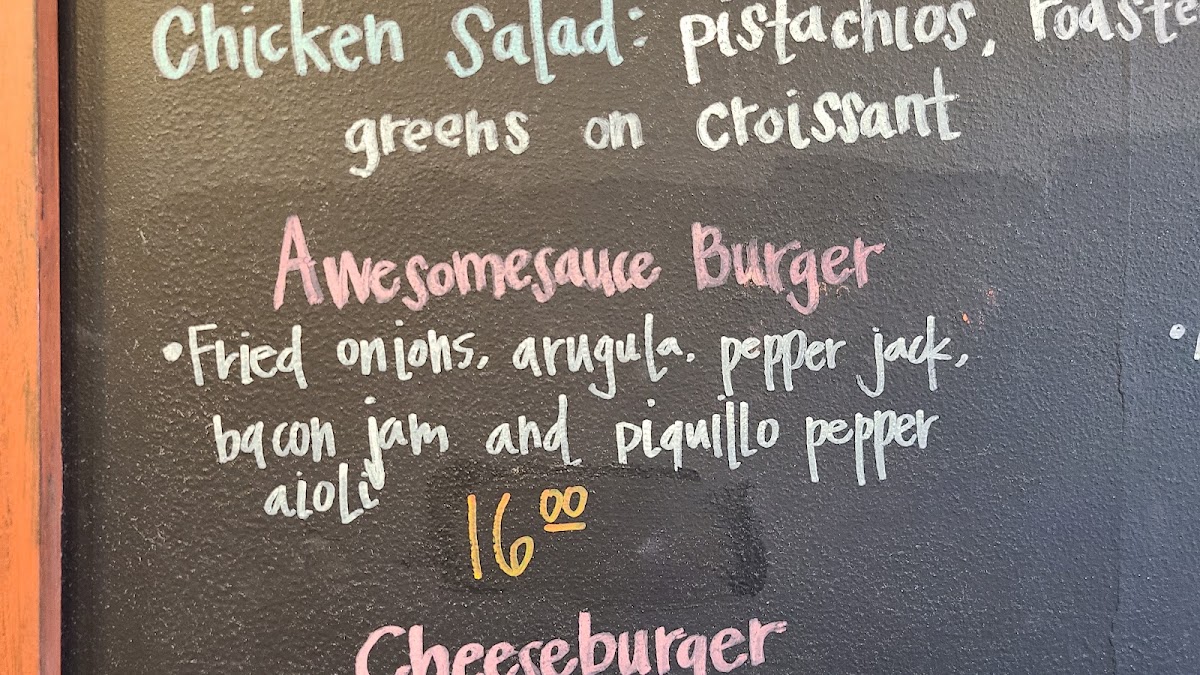 Chicken Salad: pistachios, roaste
greens on croissant
Awesomesauce Burger
•Fried onions, arugula, pepper jack,
bacon jam and piquillo pepper
aioli
16 00
Cheeseburger